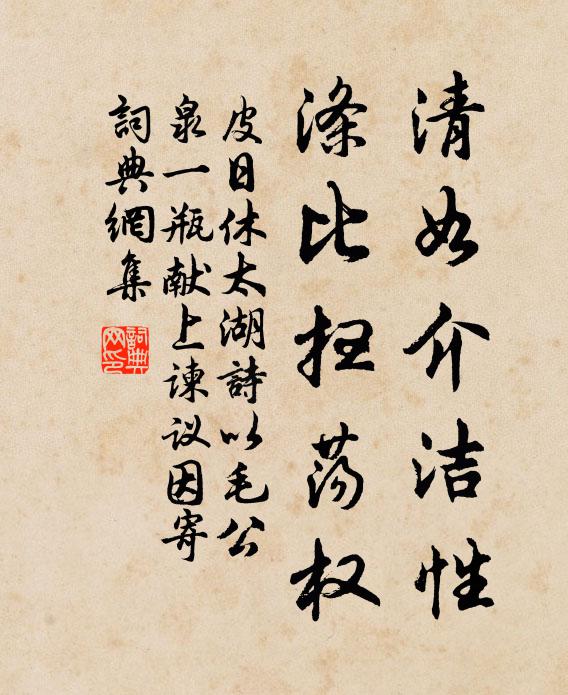 清如介洁性
涤比扫荡权
皮日休太湖詩以毛公
泉一瓶献上谏议因寄
詞典網集
詞典网印